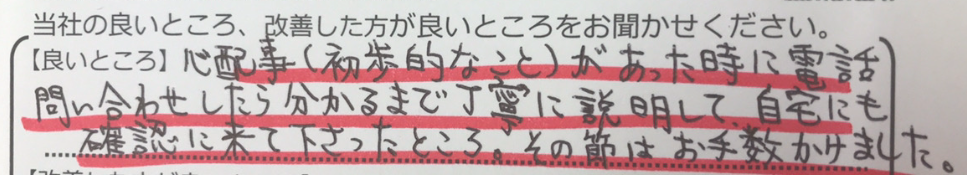 当社の良いところ、改善した方が良いところをお聞かせください。
【良いところ】心配事(初歩的なこと)があった時に電話
問い合わせしたら分かるまで丁寧に説明して、自宅にも
確認に来て下さったところ。その節はお手数かけました。